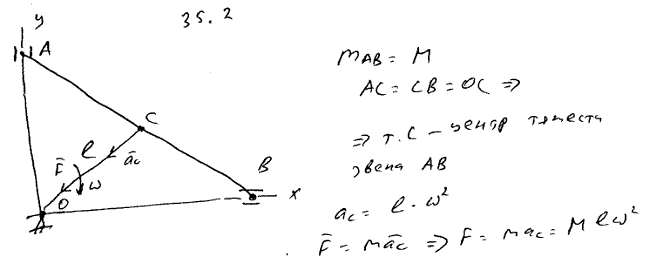 35.2
y
A
C
l
F̄
ā_c
ω
B
O
x
m_AB = M
AC = CB = OC ⇒
⇒ т. C – центр тяжести
звена AB
a_c = l · ω²
F̄ = mā_c ⇒ F = ma_c = Mlω²